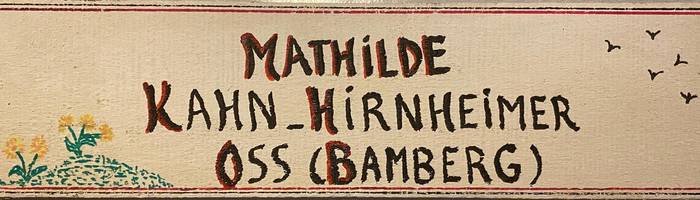 MATHiLDE
KAHN-HiRNHEiMER
OSS (BAMBERG)